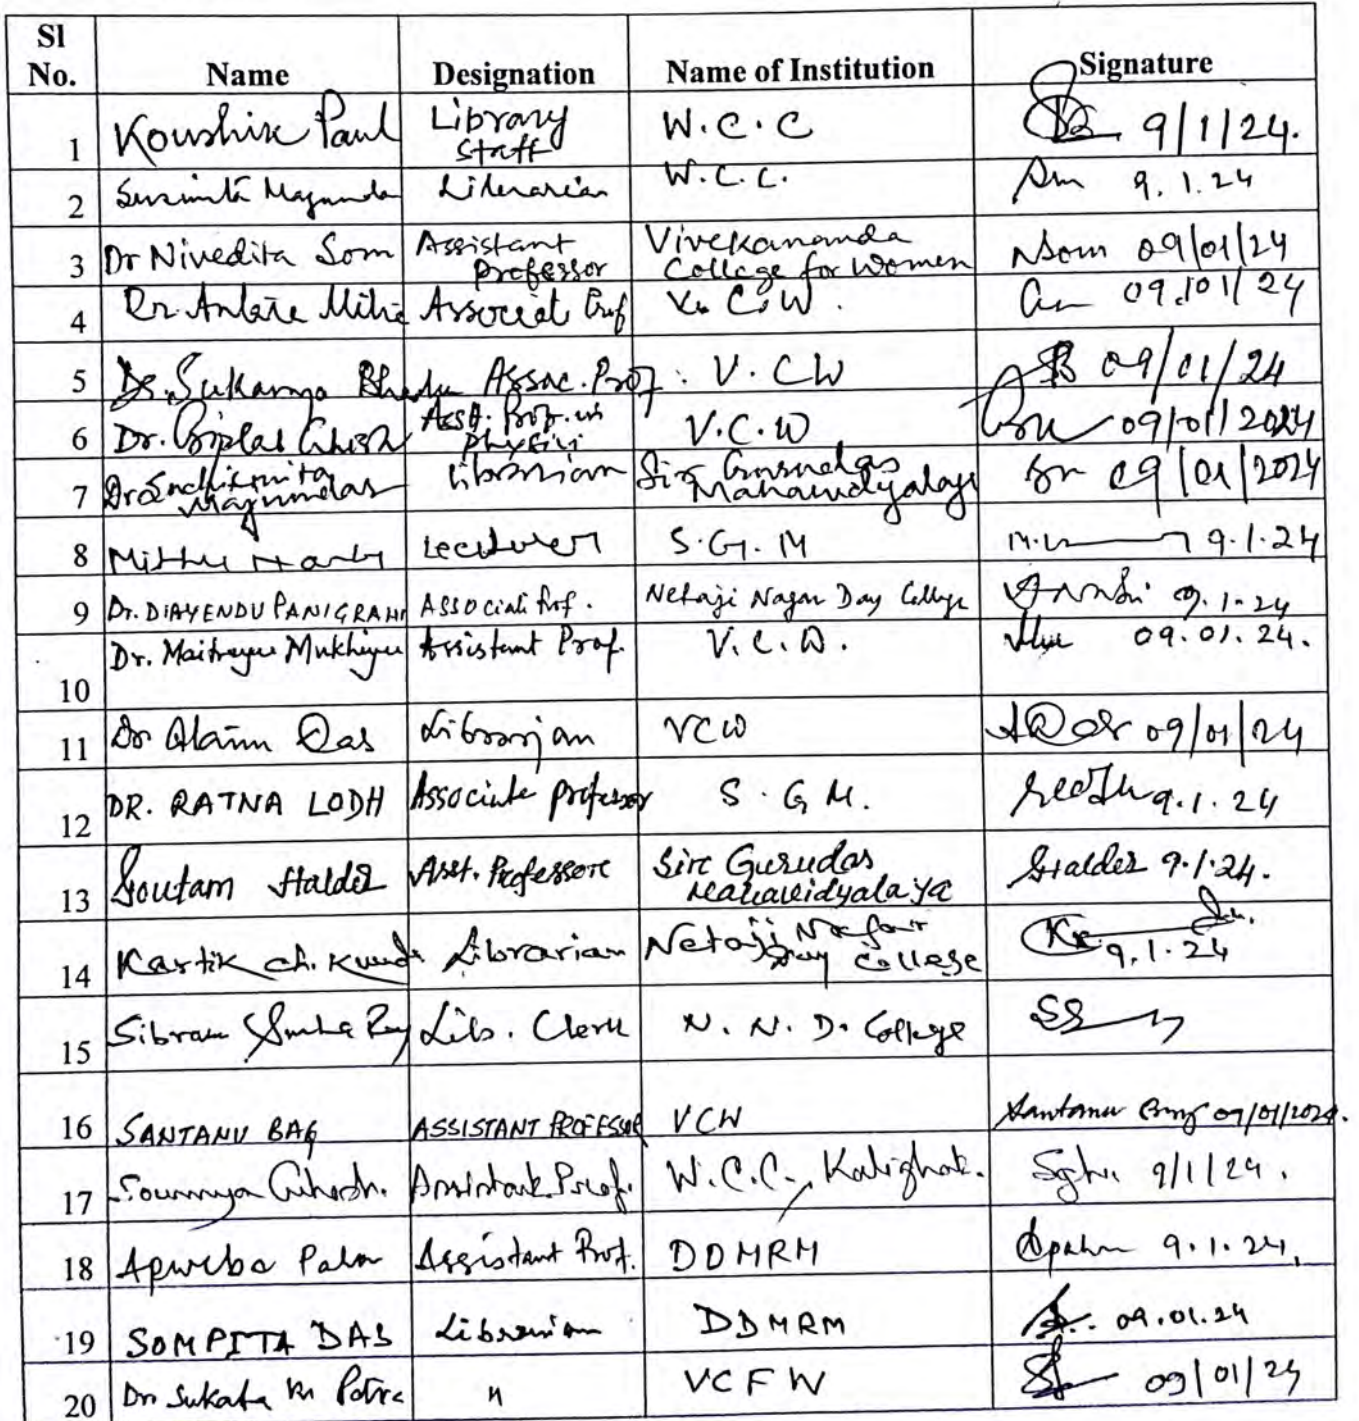 Sl No. Name Designation Name of Institution Signature
1 Koushik Paul Library Staff W.C.C 9/1/24.
2 Susmita Majumda Librarian W.C.C. 9.1.24
3 Dr Nivedita Som Assistant Professor Vivekananda College for Women NSom 09/01/24
4 Dr. Antara Mitra Associate Prof V. C. W. 09/01/24
5 Dr. Sukamya Assoc. Prof. V. CW 09/01/24
6 Dr. Biplab Ghosh Asst. Prof. in Physics V.C.W 09/01/2024
7 Dr Majumdar Librarian Sir Gurudas Mahavidyalaya 09/01/2024
8 Lecturer S.G.M 9.1.24
9 Dr. DIAYENDU PANIGRAHI Associate Prof. Netaji Nagar Day College 9.1.24
10 Dr. Maitreyee Assistant Prof. V.C.W. 09.01.24.
11 Dr Das Librarian VCW 09/01/24
12 DR. RATNA LODH Associate professor S.G.M. 9.1.24
13 Goutam Halder Asst. Professor Sir Gurudas Mahavidyalaya GHalder 9.1.24.
14 Kartik ch. Kundu Librarian Netaji Nagar Day College 9.1.24
15 Sibram Sinha Ray Lib. Clerk N. N. D. College
16 SANTANU BAG ASSISTANT PROFESSOR VCW Santanu Bag 09/01/2024.
17 Soumya Ghosh. Assistant Prof. W.C.C., Kalighat. 9/1/24.
18 Apurba Assistant Prof. DDMRM 9.1.24,
19 SOMPITA DAS Librarian DDMRM 09.01.24
20 Dr Sukata Kr Patra " VCFW 09/01/24